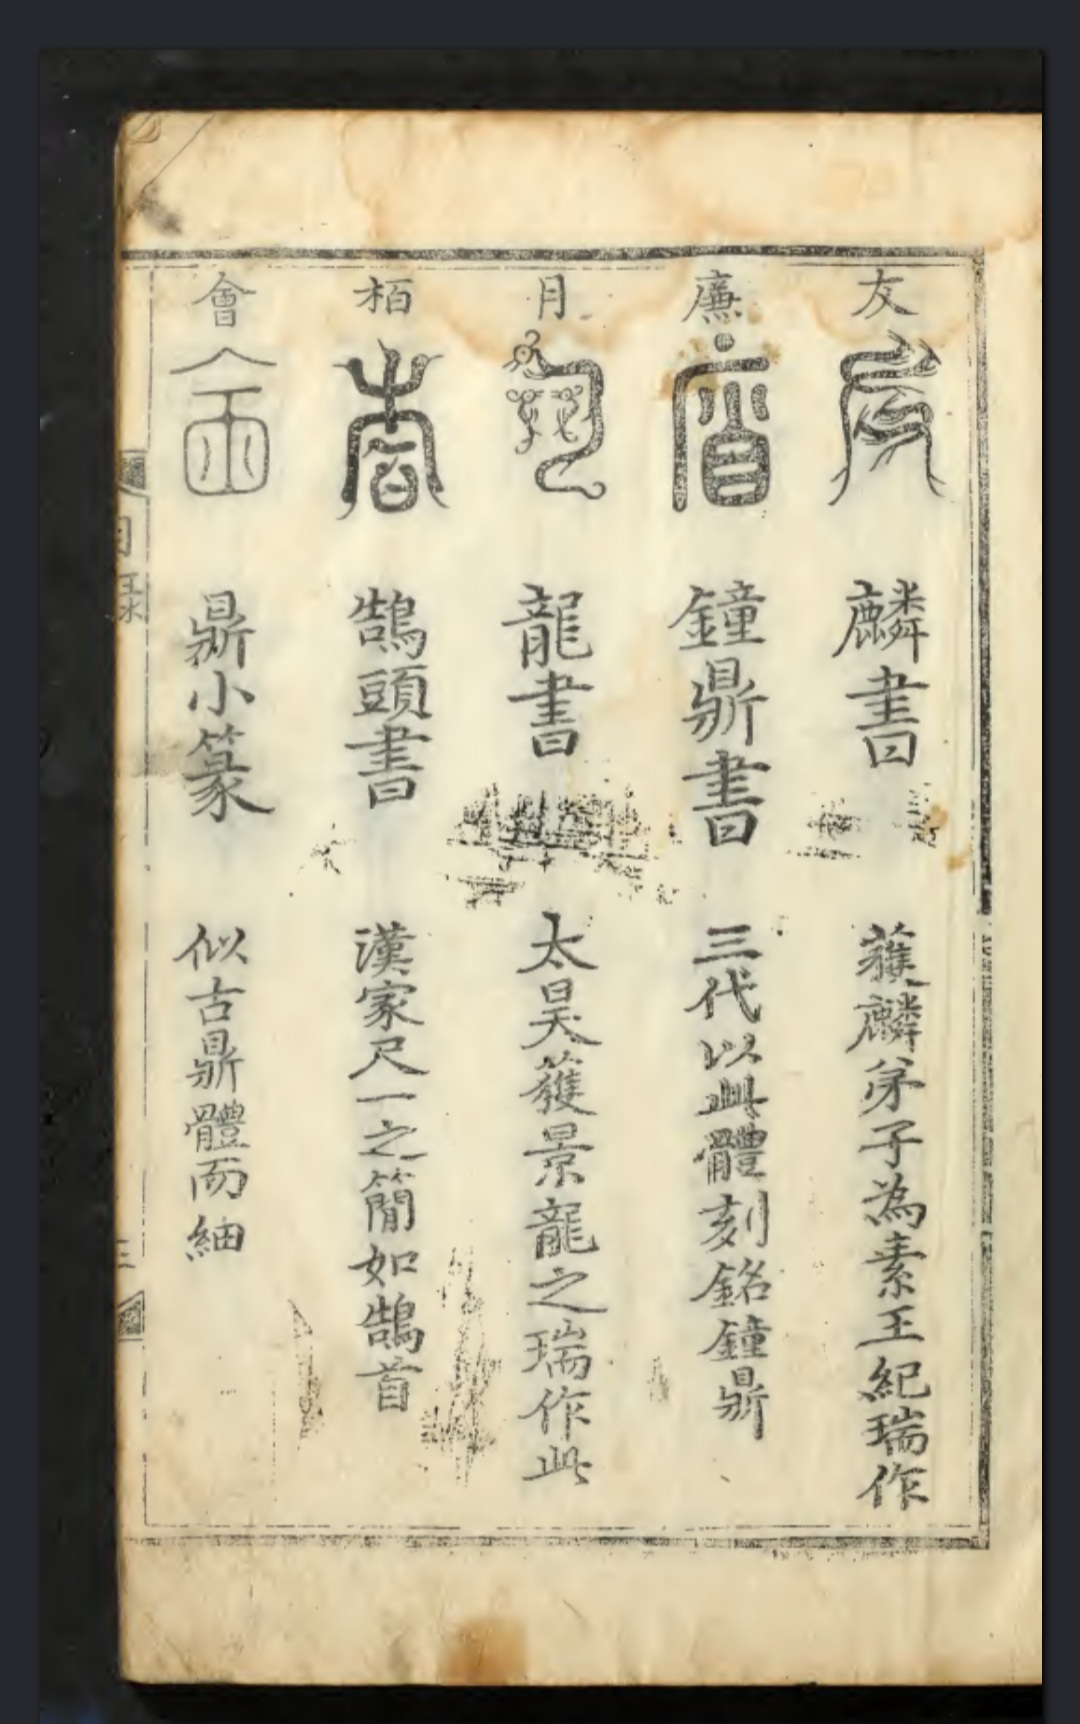 友 麟書 蔉麟弟子為素王紀瑞作
廉 鐘鼎書 三代以此體刻銘鐘鼎
月 龍書 太昊籆景龍之瑞作此
栢 鵠頭書 漢家尺一之簡如鵠首
會 鼎小篆 似古鼎體而細
目錄 三